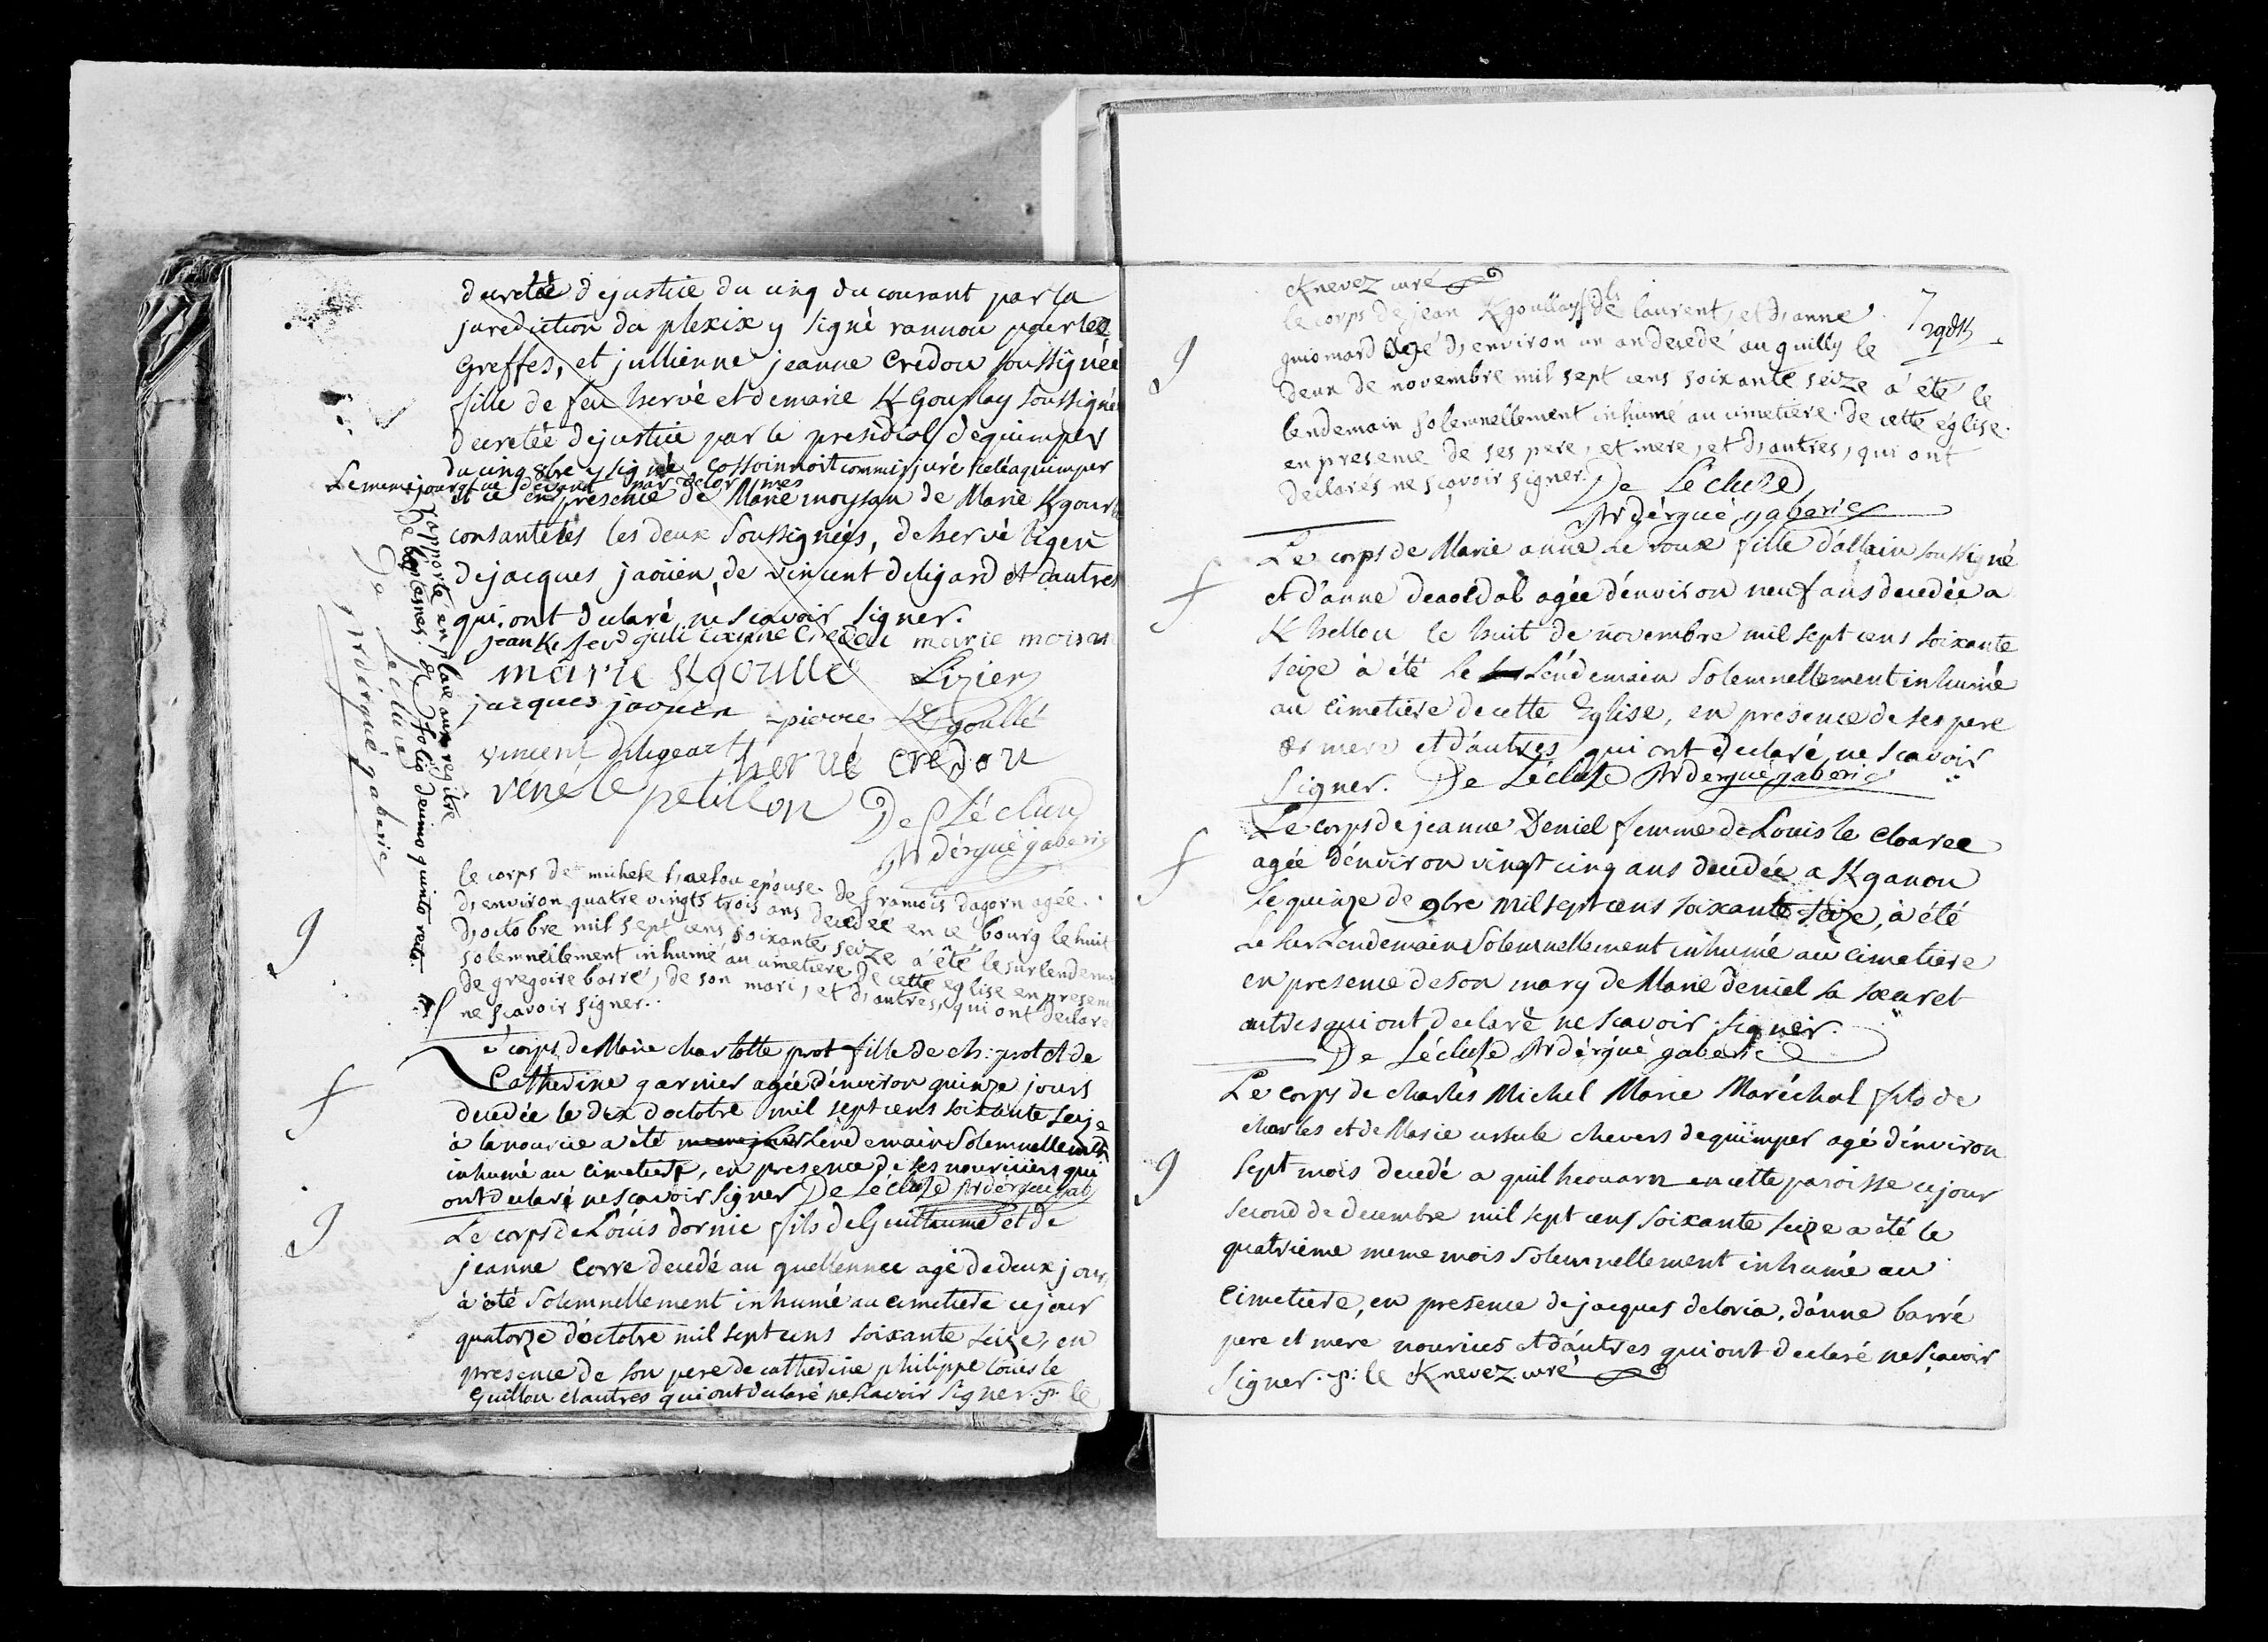 decretée de justice du cinq du courant par la
jurediction du plexix y signé rannou pour les
Greffes, et jullienne jeanne Credou soussignée
fille de feu hervé et de marie Kgourlay soussignée
decretée de justice par le presidial de quimper
du cinq 8bre y signé cossoin noit commis juré scelé a quimper
Le meme jour que devant par delormes
et ce en presence de Marie moysan de Marie Kgour
consantées les deux soussignées, de hervé ligen
de jacques jaouen de vincent deligard et d'autres
qui ont declaré ne scavoir signer.
jean marie moisan
marie Kgoulle Lizien
jacques jaouen pierre Kgoullé
vincent diligeart hervé credou
rené le petillon De Lécluse
Ardergué gaberic
rapporté en place au registre
de baptesmes folio decimo quinto recto.
De Lécluse
Ardergué gaberic
9
le corps de michele epouse de francois dagorn agée
d'environ quatre vingts trois ans decedée en ce bourg le huit
d'octobre mil sept cens soixante seize a été le surlendemain
solemnellement inhumé au cimetiere de cette eglise en presence
de gregoire barré, de son mari, et d'autres, qui ont declaré
ne scavoir signer.
f
Le corps de Marie charlotte prot fille de ch: prot et de
Catherine garnier agée d'environ quinze jours
decedée le dix d'octobre mil sept cens soixante seize
à la nourice a été Lendemain Solemnellement
inhumé au cimetiere, en presence de ses nouriciers qui
ont declaré ne scavoir signer De Lécluse Ardergué gab
9
Le corps de Louis dornic fils de Guillaume et de
jeanne Corre decedé au quellennec agé de deux jours
à été solemnellement inhumé au cimetiere ce jour
quatorze d'octobre mil sept cens soixante seize, en
presence de son pere de catherine philippe Louis le
Guillou et autres qui ont declaré ne scavoir signer. p: le
Knevez curé
9
le corps de jean Kgoullay fils de laurent, et d'anne
guiomard agé d'environ un an decedé au quilly le
deux de novembre mil sept cens soixante seize a été le
lendemain solemnellement inhumé au cimetiere de cette église
en presence de ses pere, et mere, et d'autres, qui ont
declarés ne scavoir signer. De Lécluse
Ardergué gaberic
f
Le corps de Marie anne Le roux fille d'allain soussigné
et d'anne agée d'environ neuf ans decedée a
Khellou le huit de novembre mil sept cens soixante
seize à été Le Lendemain Solemnellement inhumé
au cimetiere de cette Eglise, en presence de ses pere
et mere et d'autres qui ont declaré ne scavoir
signer. De Lécluse Ardergué gaberic
f
Le corps de jeanne Deniel femme de Louis le cloarec
agée d'environ vingt cinq ans decedée a Kganou
Le quinze de 9bre mil sept cens soixante seize, à été
Le surLendemain Solemnellement inhumé au cimetiere
en presence de son mary de Marie deniel sa soeur et
autres qui ont declaré ne scavoir signer.
De Lécluse Ardergué gaberic
9
Le corps de charles Michel Marie Maréchal fils de
charles et de Marie ursule chevers de quimper agé d'environ
sept mois decedé a quilheouarn en cette paroisse ce jour
second de decembre mil sept cens soixante seize a été le
quatrieme meme mois Solemnellement inhumé au
Cimetiere, en presence de jacques deloria, d'anne barré
pere et mere nourices et d'autres qui ont declaré ne scavoir
signer. p: le Knevez curé